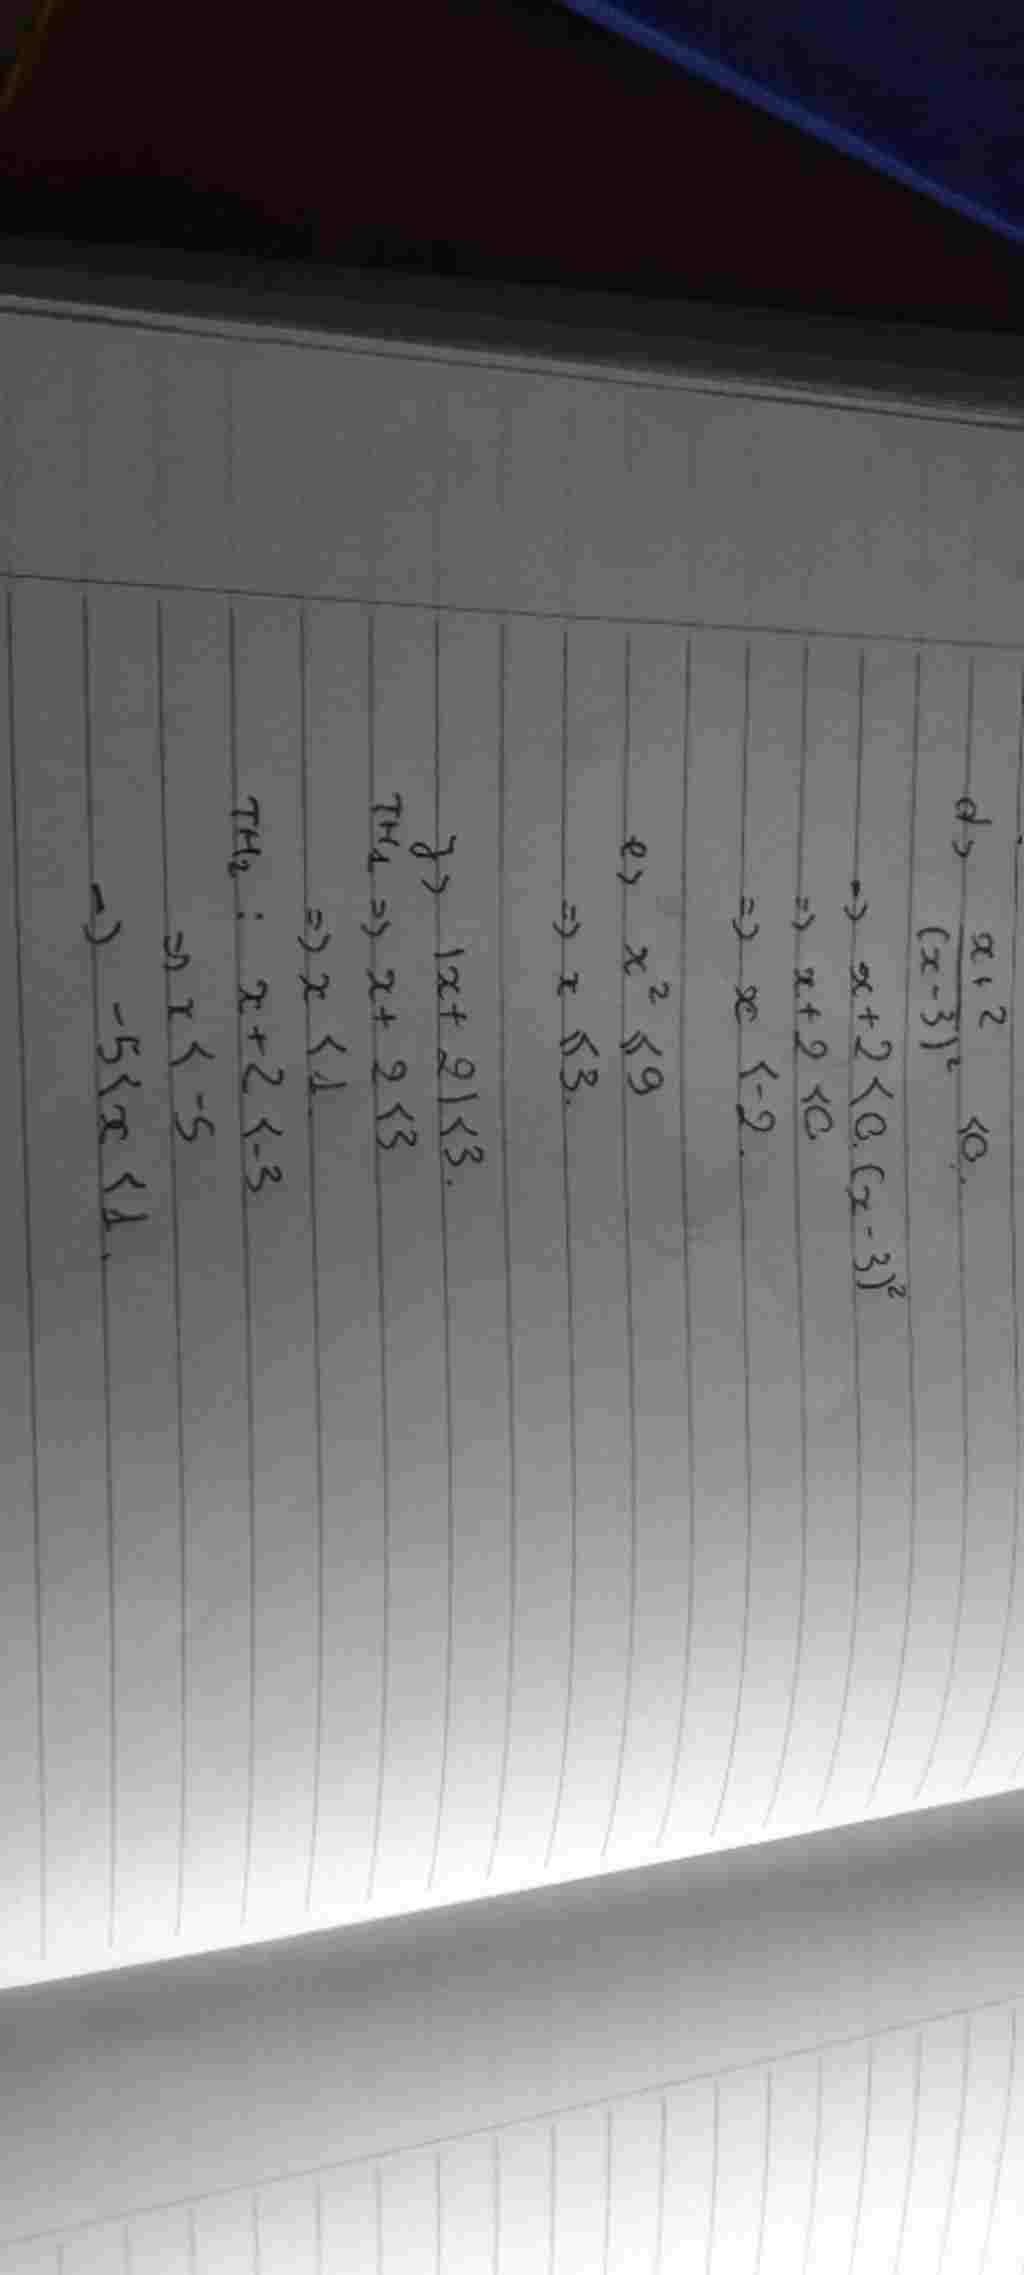 d> x+2/(x-3)² <0.
=> x+2<0.(x-3)²
=> x+2<0
=> x<-2.
e> x² ⩽9
=> x ⩽3.
f> |x+2|<3.
TH1 => x+2<3
=> x<1
TH2: x+2<-3
=> x<-5
=> -5<x<1.